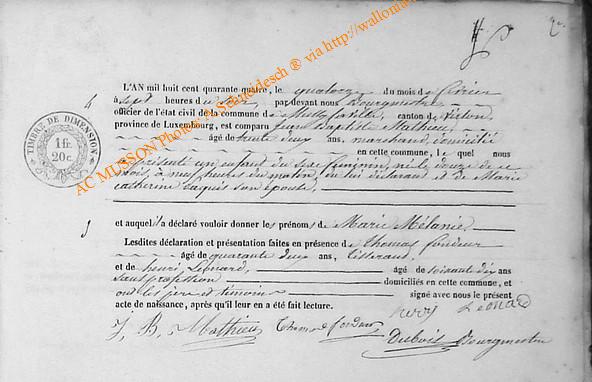 L'AN mil huit cent quarante quatre, le quatorze du mois de février
à sept heures du soir par devant nous Bourgmestre
officier de l'état civil de la commune de canton de Virton,
province de Luxembourg, est comparu Jean Baptiste Mathieu,
âgé de trente deux ans, marchand, domicilié
en cette commune, le quel nous
a présenté un enfant du sexe féminin, né le douze de ce
mois, à neuf heures du matin, de lui déclarant et de Marie
catherine son épouse.
et auquel il a déclaré vouloir donner les prénoms de Marie Mélanie
Lesdites déclaration et présentation faites en présence de Thomas fondeur
âgé de quarante deux ans, tisserand,
et de henri Léonard, âgé de soixante dix ans
sans profession domiciliés en cette commune et
ont les père et témoins signé avec nous le présent
acte de naissance, après qu'il leur en a été fait lecture.
henry Leonard
J. B. Mathieu
Dubois Bourgmestre
TIMBRE DE DIMENSION
1 fr.
20 c.
AC MUSSON Photo Schneidesch ® via http://wallonia